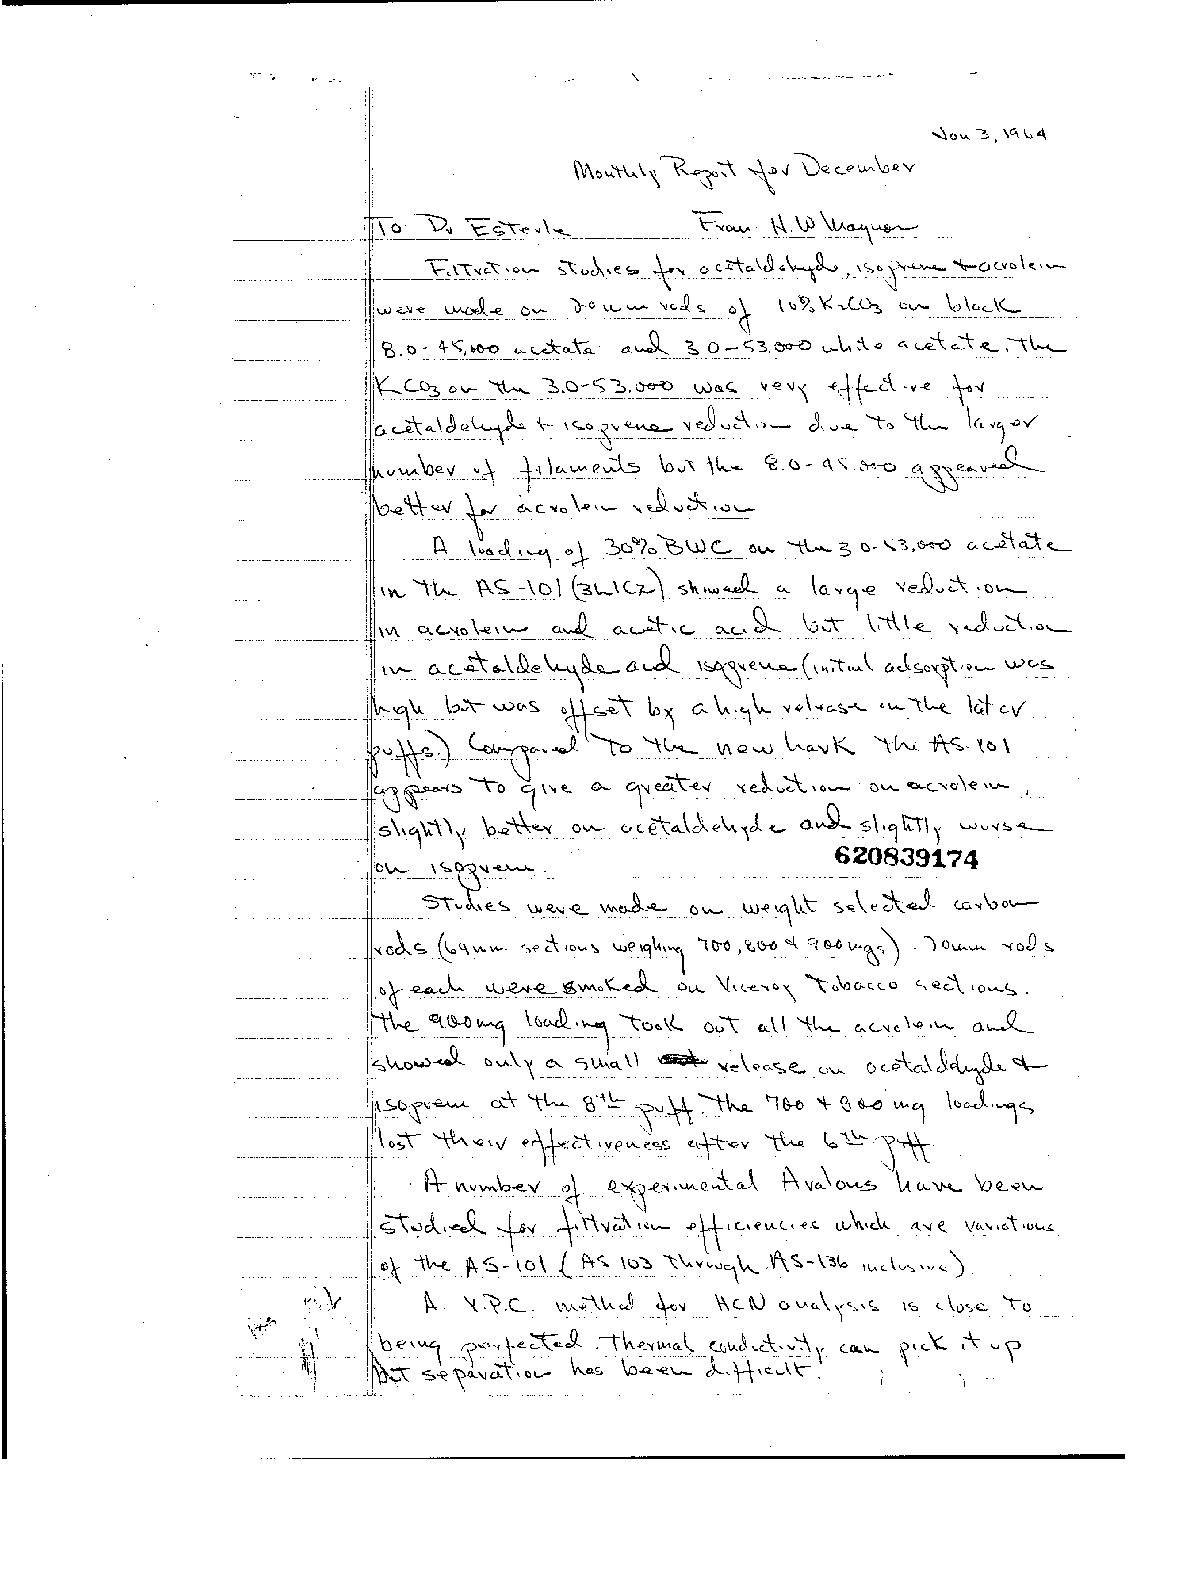 Jan 3, 1964
Monthly Report for December
To Dr Esterle From H. W Wagner
Filtration studies for acetaldehyde, isoprene & acrolein
were made on 70mm rods of 10% K2CO3 on black
8.0-45,000 acetate and 3.0-53,000 white acetate. The
KCO3 on the 3.0-53,000 was very effective for
acetaldehyde & isoprene reduction due to the larger
number of filaments but the 8.0-45,000 appeared
better for acrolein reduction
A loading of 30% BWC on the 3.0-53,000 acetate
in the AS-101 showed a large reduction
in acrolein and acetic acid but little reduction
in acetaldehyde and isoprene (initial adsorption was
high but was offset by a high release in the later
puffs.) Compared to the new the AS-101
appears to give a greater reduction on acrolein,
slightly better on acetaldehyde and slightly worse
on isoprene.
620839174
Studies were made on weight selected carbon
rods (69mm sections weighing 700, 800 & 900mgs). 70mm rods
of each were smoked on Viceroy Tobacco sections.
The 900mg loading took out all the acrolein and
showed only a small release on acetaldehyde &
isoprene at the 8th puff. The 700 & 800 mg loadings
lost their effectiveness after the 6th puff
A number of experimental Avalons have been
studied for filtration efficiencies which are variations
of the AS-101 (AS 103 through AS-136 inclusive)
A V.P.C. method for HCN analysis is close to
being perfected. Thermal conductivity can pick it up
but separation has been difficult.